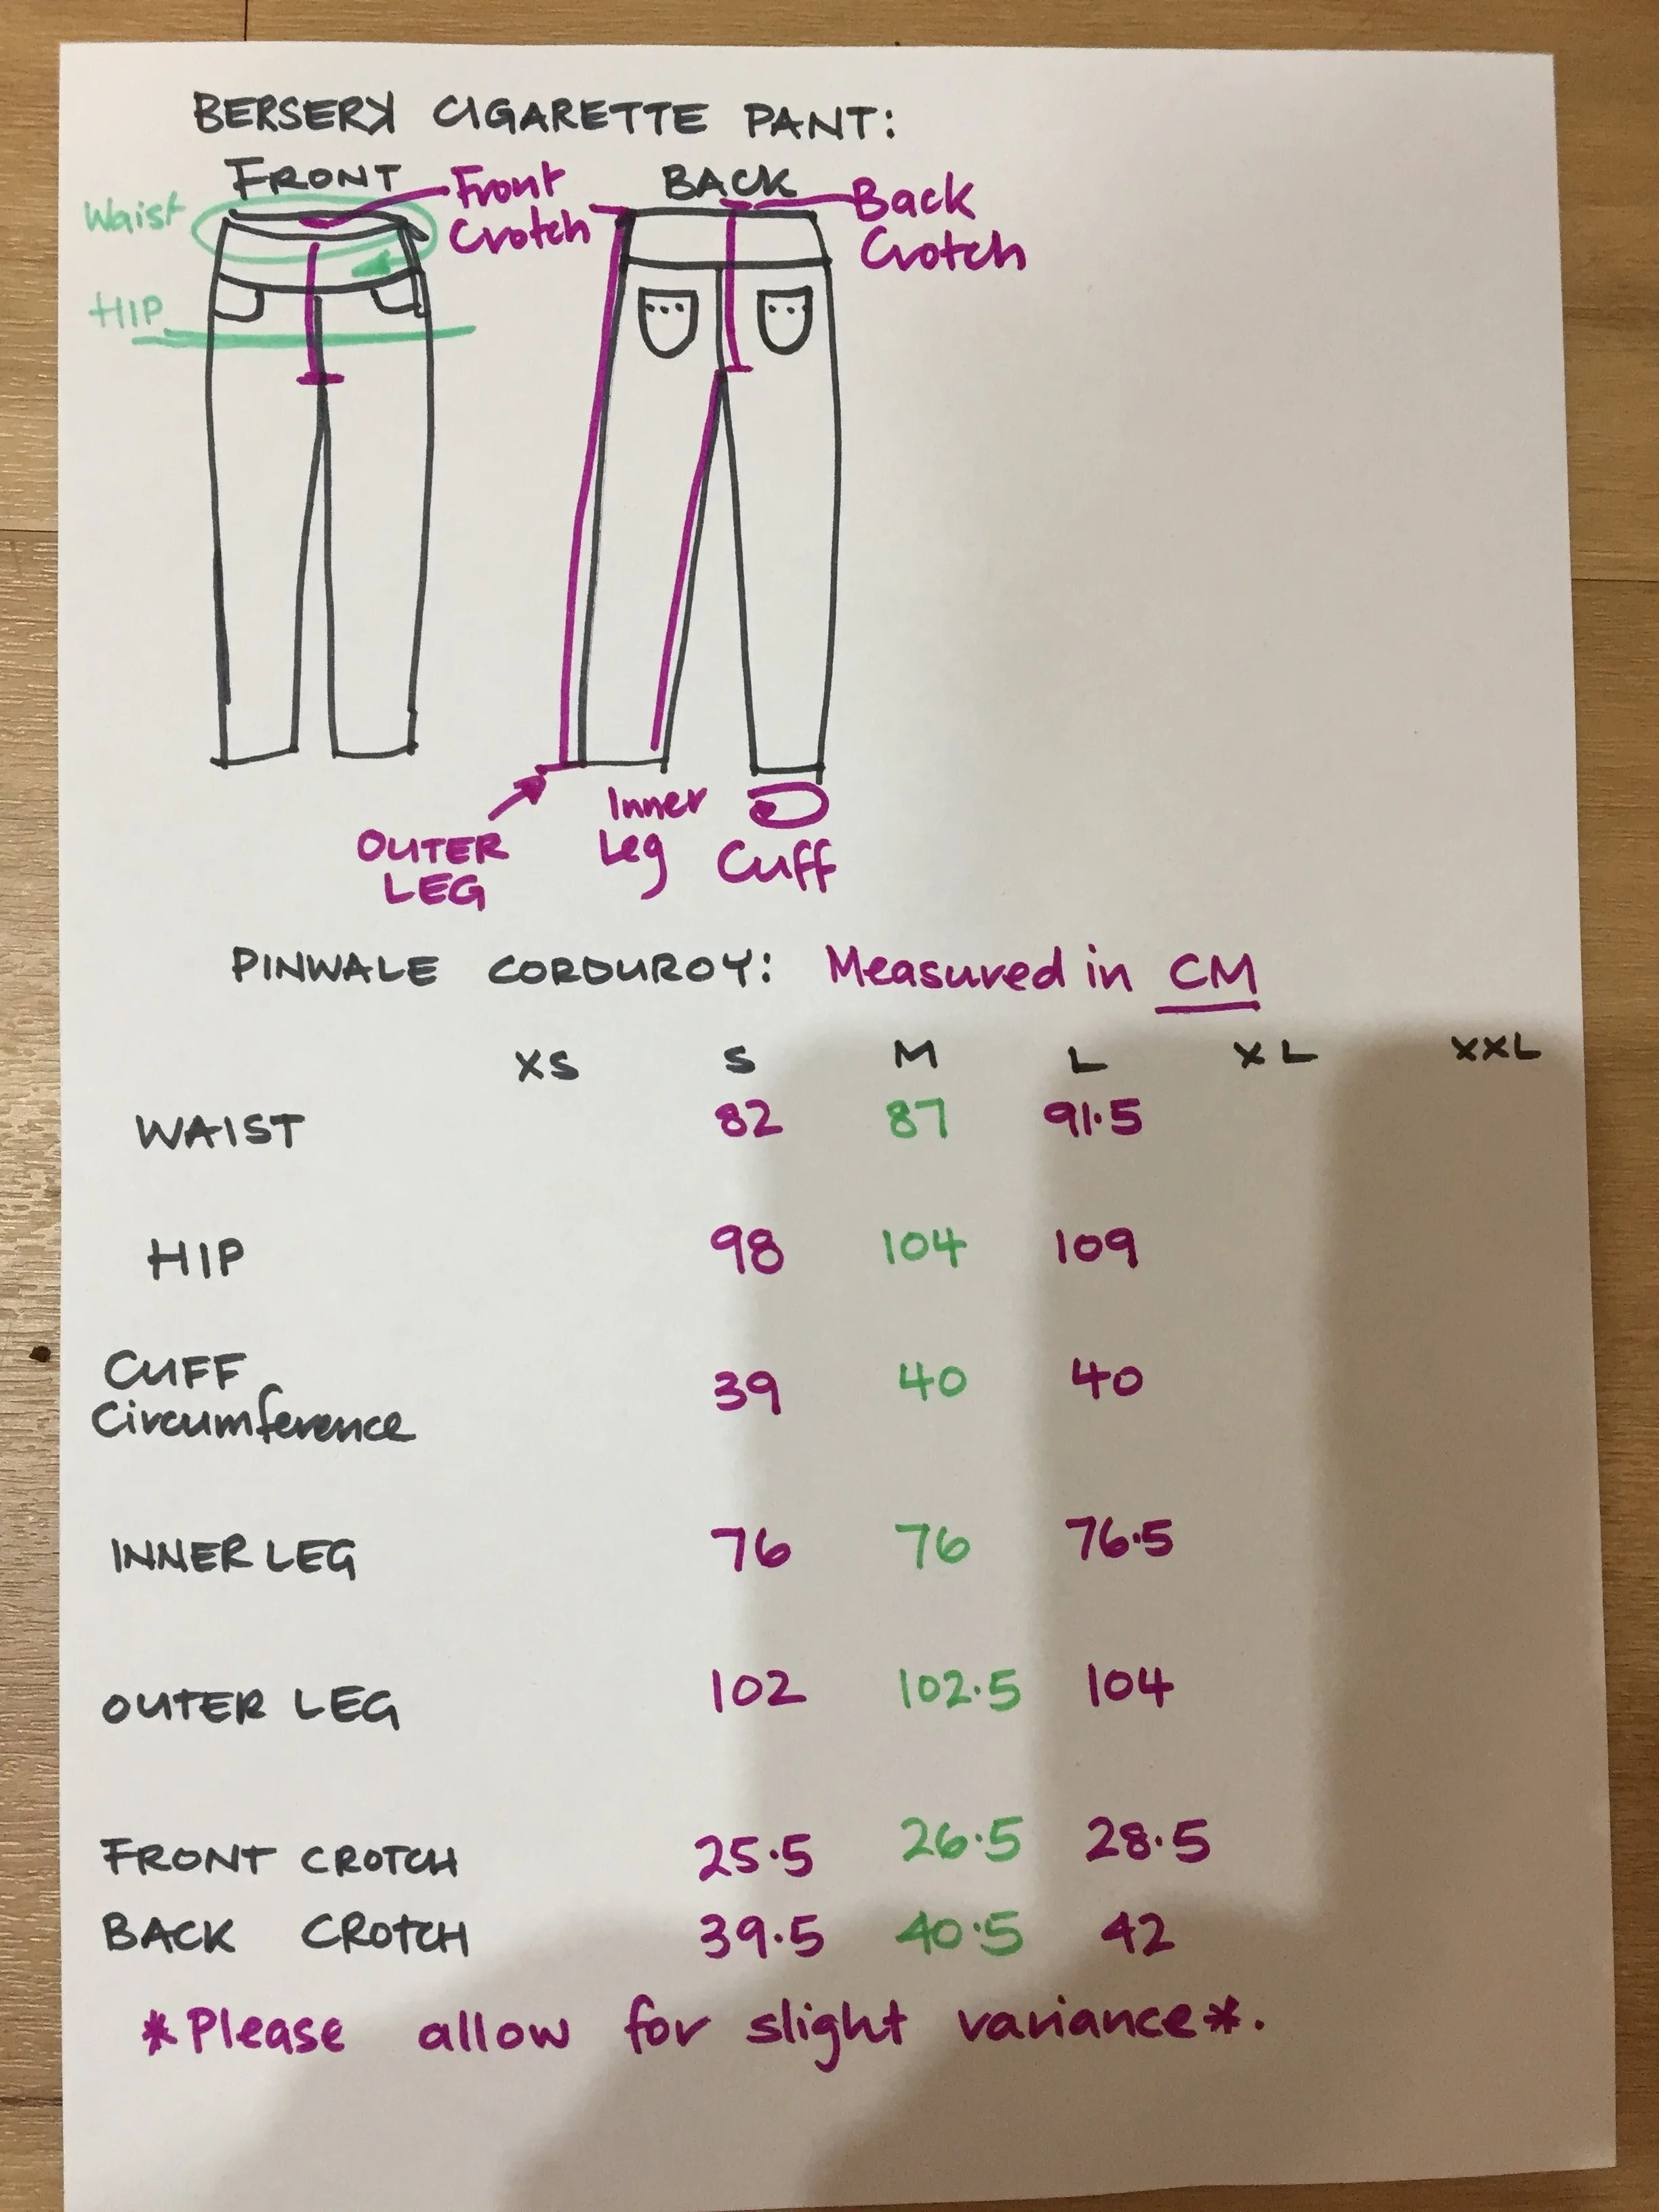 BERSERK CIGARETTE PANT:
FRONT
BACK
Waist
Front
Crotch
Back
Crotch
HIP
OUTER
LEG
Inner
Leg
Cuff
PINWALE CORDUROY: Measured in CM
XS S M L XL XXL
WAIST 82 87 91.5
HIP 98 104 109
CUFF
Circumference 39 40 40
INNER LEG 76 76 76.5
OUTER LEG 102 102.5 104
FRONT CROTCH 25.5 26.5 28.5
BACK CROTCH 39.5 40.5 42
*Please allow for slight variance*.